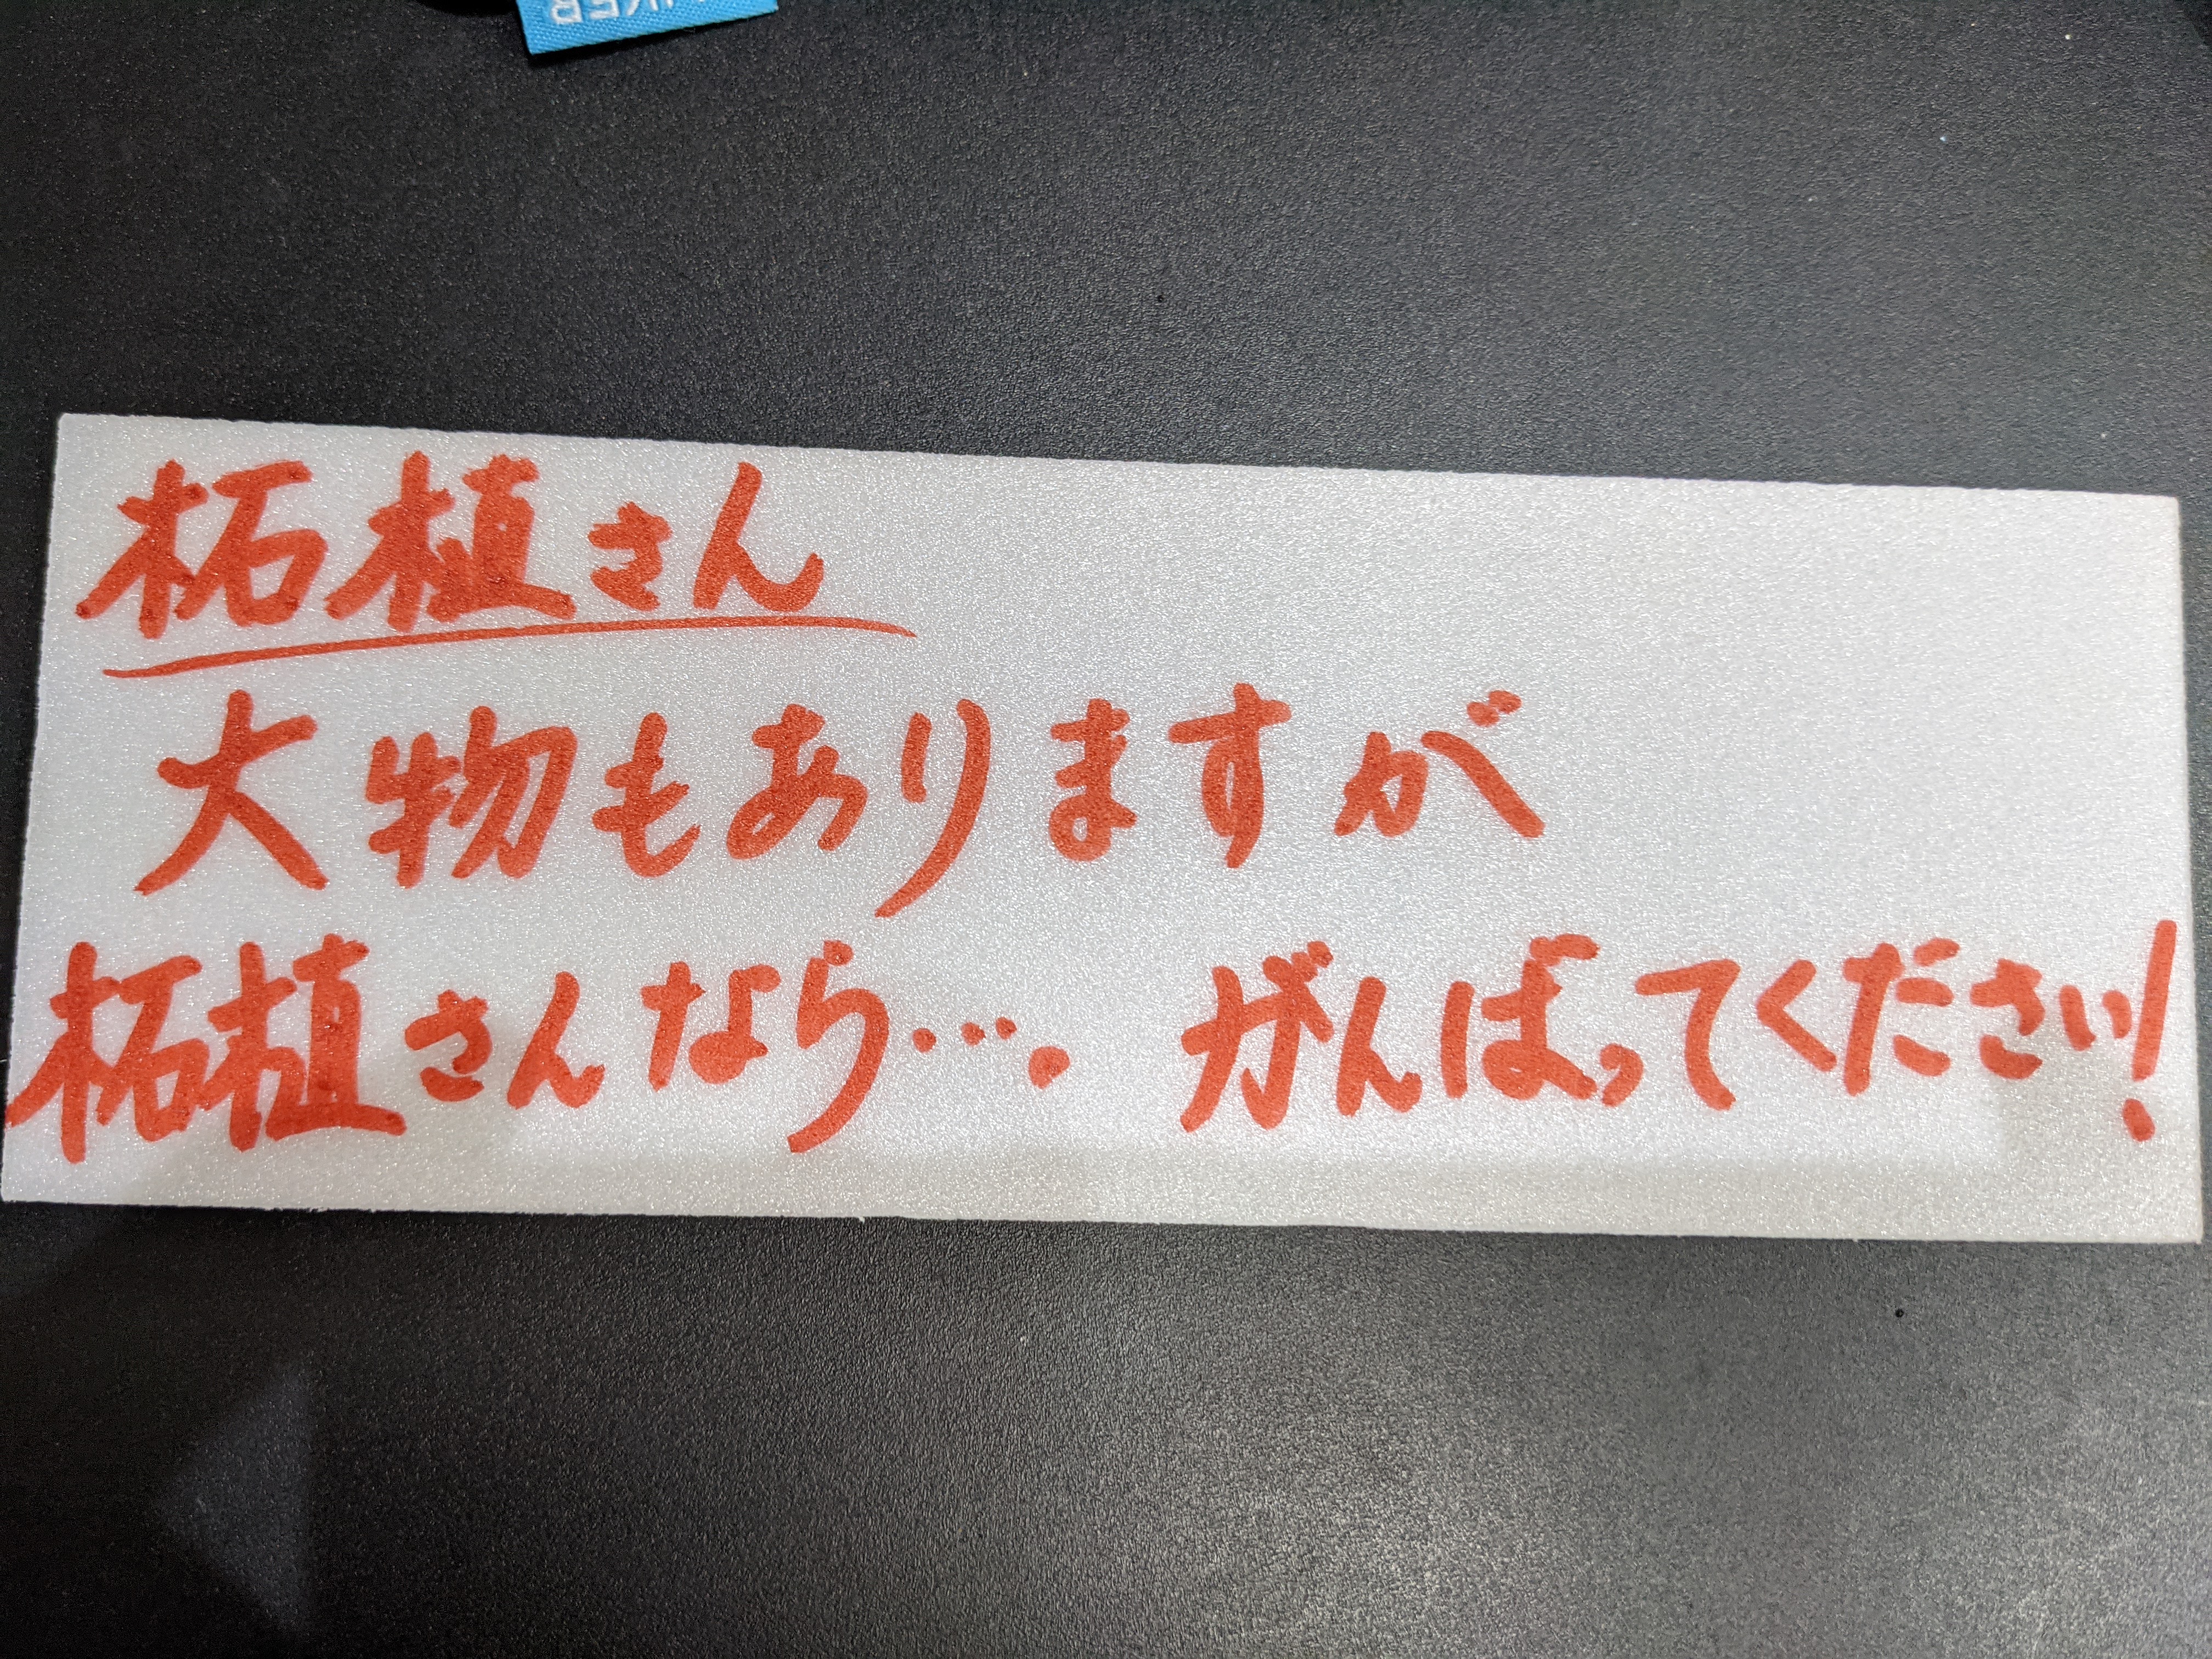 柘植さん
大物もありますが
柘植さんなら…. がんばってください!